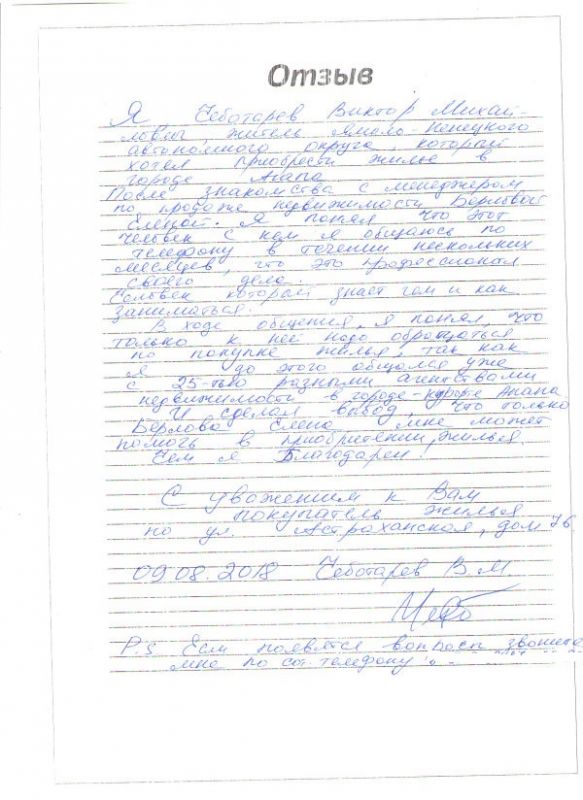 Отзыв
Я Чеботарев Виктор Михай-
лович, житель Ямало-Ненецкого
автономного округа, который
хотел приобрести жилье в
городе Анапа
После знакомства с менеджером
по продаже недвижимости Берловой
Еленой. Я понял что этот
человек с кем я общаюсь по
телефону в течении нескольких
месяцев, что это профессионал
своего дела.
Человек который знает чем и как
заниматься.
В ходе общения, я понял, что
только к ней надо обращаться
по покупке жилья, так как
я до этого общался уже
с 25-тью разными агентствами
недвижимости в городе-курорте Анапа
И сделал вывод, что только
Берлова Елена мне может
помочь в приобритении жилья
Чем я Благодарен!
С уважением к Вам
покупатель жилья
по ул. Астраханская, дом 76
09.08.2018 Чеботарев В.М.
P.S Если появятся вопросы звоните
мне по сот. телефону